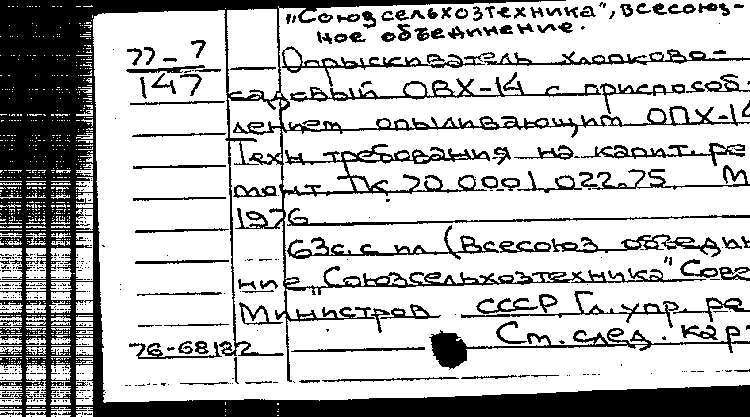 "Союзсельхозтехника", всесоюз-
ное объединение.
77-7
147
Опрыскиватель хлопково-
садовый ОВХ-14 с приспособ-
лением опыливающим ОПХ-14
Техн. требования на капит. ре
монт. ТК 70.0001.022.75. М
1976
63с. с ил. (Всесоюз. объедин
ние "Союзсельхозтехника" Сове
Министров СССР. Гл. упр. ре
76-68132
Ст. след. кар